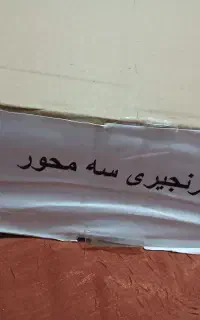 رنجیری سه محور